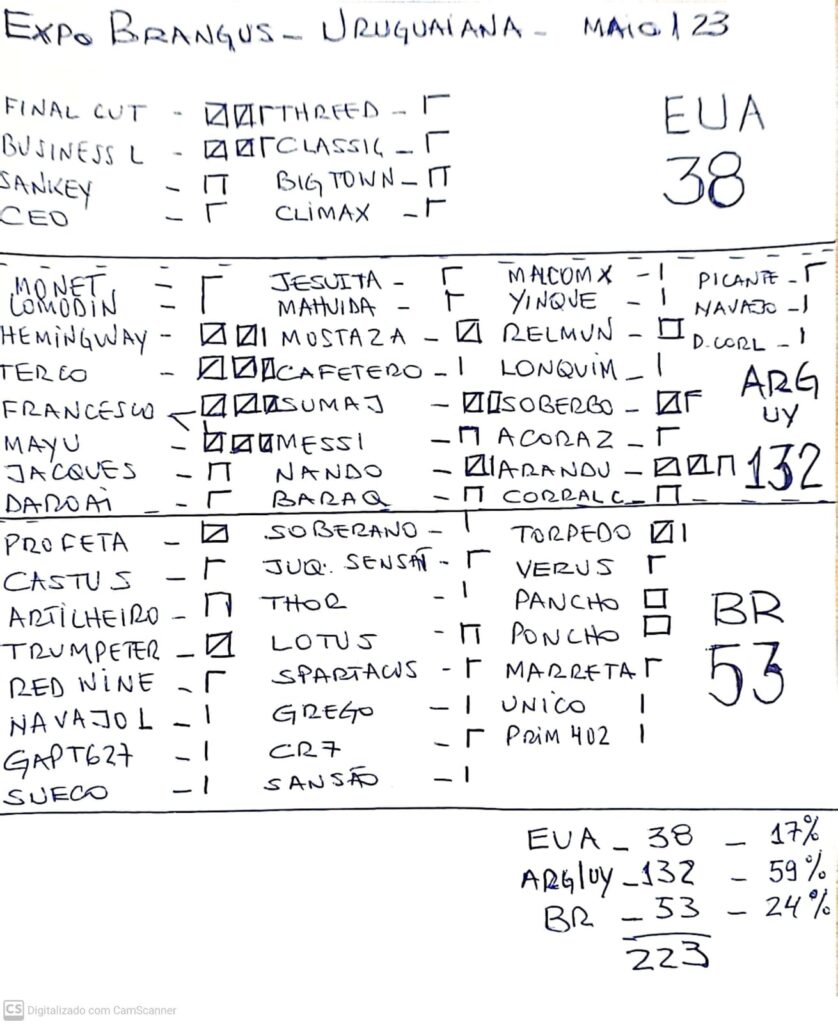 EXPO BRANGUS - URUGUAIANA - MAIO/23
FINAL CUT - THREED -
BUSINESS L - CLASSIC -
SANKEY - BIG TOWN -
CEO - CLIMAX -
EUA
38
MONET - JESUITA - MALCOM X - PICANTE -
COMODIN - MAHUIDA - YINQUE - NAVAJO -
HEMINGWAY - MOSTAZA - RELMUN - D. CORL -
TERCO - CAFETERO - LONQUIM -
FRANCESCO - SUMAJ - SOBERBO -
MAYU - MESSI - ACORAZ -
JACQUES - NANDO - ARANDU -
DAROAI - BARAQ - CORRAL C -
ARG
UY
132
PROFETA - SOBERANO - TORPEDO
CASTUS - JUQ. SENSAI - VERUS
ARTILHEIRO - THOR - PANCHO
TRUMPETER - LOTUS - PONCHO
RED WINE - SPARTACUS - MARRETA
NAVAJO L - GREGO - UNICO
GAPT627 - CR7 - PRIM 402
SUECO - SANSÃO -
BR
53
EUA - 38 - 17%
ARG/UY - 132 - 59%
BR - 53 - 24%
223
CS Digitalizado com CamScanner